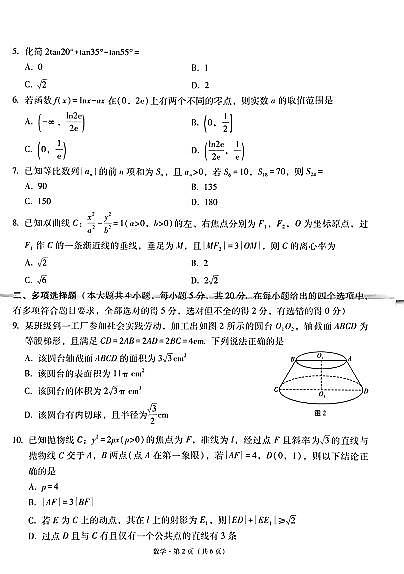 5. 化简 2tan20°+tan35°-tan55°=
A. 0 B. 1
C. √2 D. 2
6. 若函数f(x)=lnx-ax 在(0, 2e)上有两个不同的零点, 则实数 a 的取值范围是
A. (-∞, ln2e/2e) B. (0, 1/2]
C. (0, 1/e) D. (ln2e/2e, 1/e)
7. 已知等比数列{aₙ}的前 n 项和为 Sₙ, 且 aₙ>0, 若 S₆=10, S₁₈=70, 则 S₂₄=
A. 90 B. 135
C. 150 D. 180
8. 已知双曲线 C: x²/a²-y²/b²=1(a>0, b>0)的左、右焦点分别为 F₁, F₂, O 为坐标原点, 过
F₁ 作 C 的一条渐近线的垂线, 垂足为 M, 且|MF₂|=3|OM|, 则 C 的离心率为
A. √2 B. 2
C. √6 D. 2√2
二、多项选择题(本大题共4小题, 每小题5分, 共20分. 在每小题给出的四个选项中,
有多项符合题目要求, 全部选对的得 5 分, 选对但不全的得 2 分, 有选错的得 0 分)
9. 某班级到一工厂参加社会实践劳动, 加工出如图 2 所示的圆台 O₁O₂, 轴截面 ABCD 为
等腰梯形, 且满足 CD=2AB=2AD=2BC=4cm. 下列说法正确的是
A. 该圆台轴截面 ABCD 的面积为 3√3cm²
B. 该圆台的表面积为 11π cm²
C. 该圆台的体积为 2√3π cm³
D. 该圆台有内切球, 且半径为√3/2cm
B O₁ A
C D
图 2
10. 已知抛物线 C: y²=2px(p>0)的焦点为 F, 准线为 l, 经过点 F 且斜率为√3的直线与
抛物线 C 交于 A, B 两点(点 A 在第一象限), 若|AF|=4, D(0, 1), 则以下结论正
确的是
A. p=4
B. |AF|=3|BF|
C. 若 E 为 C 上的动点, 其在 l 上的射影为 E₁, 则|ED|+|EE₁|≥√2
D. 过点 D 且与 C 有且仅有一个公共点的直线有 3 条
数学·第 2 页(共 6 页)